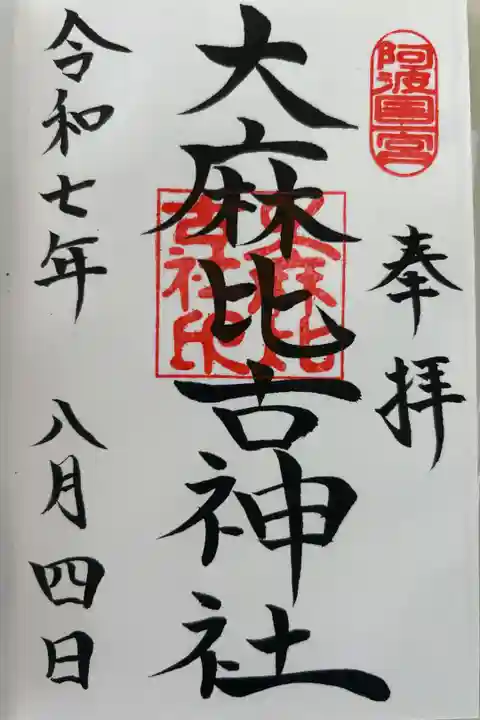 阿波国一宮
奉拝
大麻比古神社
大麻比
古社印
令和七年 八月四日